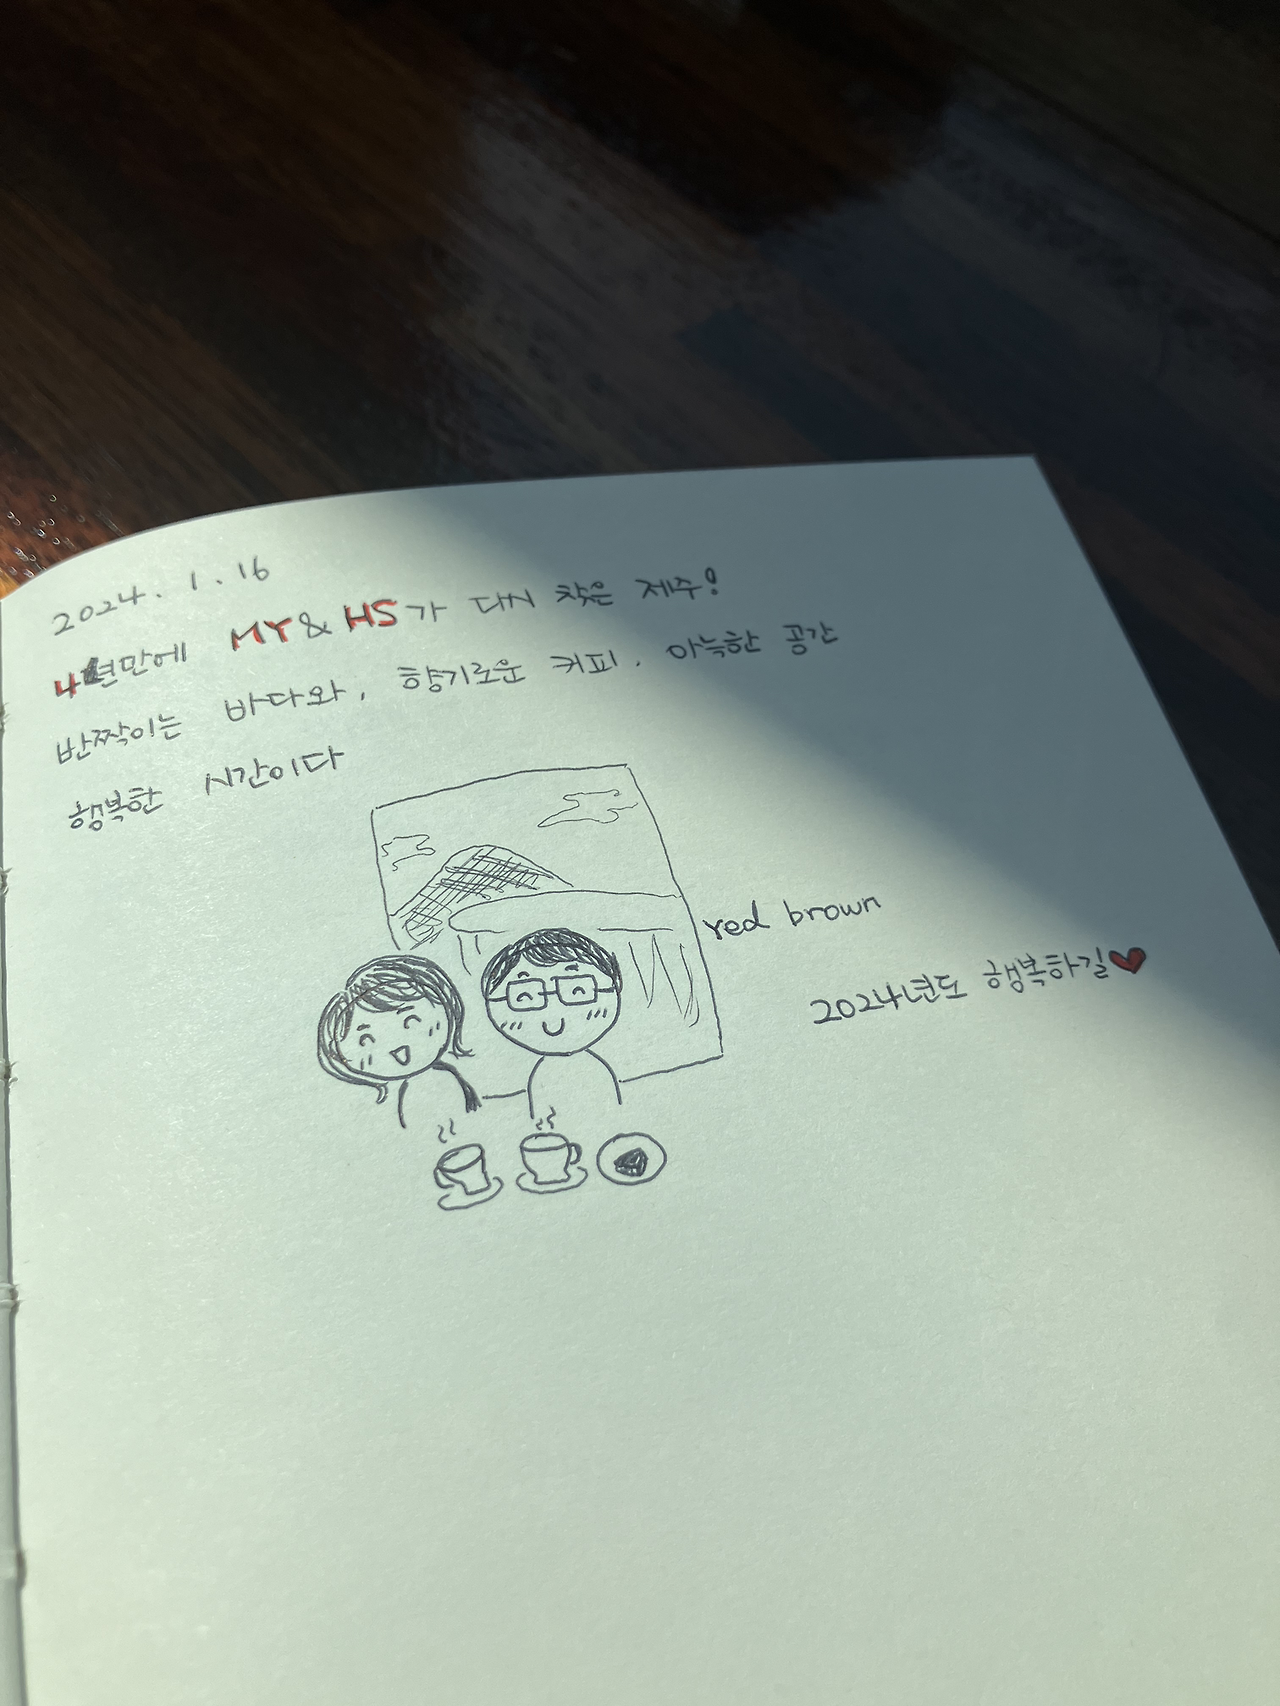 2024. 1. 16
4년만에 MY & HS가 다시 찾은 제주!
반짝이는 바다와, 향기로운 커피, 아늑한 공간
행복한 시간이다
red brown
2024년도 행복하길♥